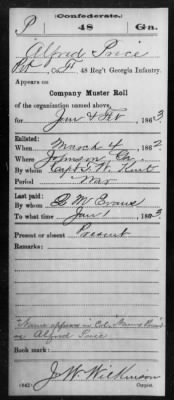 (Confederate.)
P 48 Ga.
Alfred Price
Pvt, Co. F, 48 Reg't Georgia Infantry.
Appears on
Company Muster Roll
of the organization named above,
for Jan & Feb, 1863.
Enlisted:
When March 4, 1862
Where Johnson Co.
By whom Capt. T. W. Kent
Period War
Last paid:
By whom B M Evans
To what time Jan 1, 1863
Present or absent Present
Remarks:
"Name appears in Col. Names Present"
as Alfred Price
Book mark:
J. W. Wilkinson
(642) Copyist.